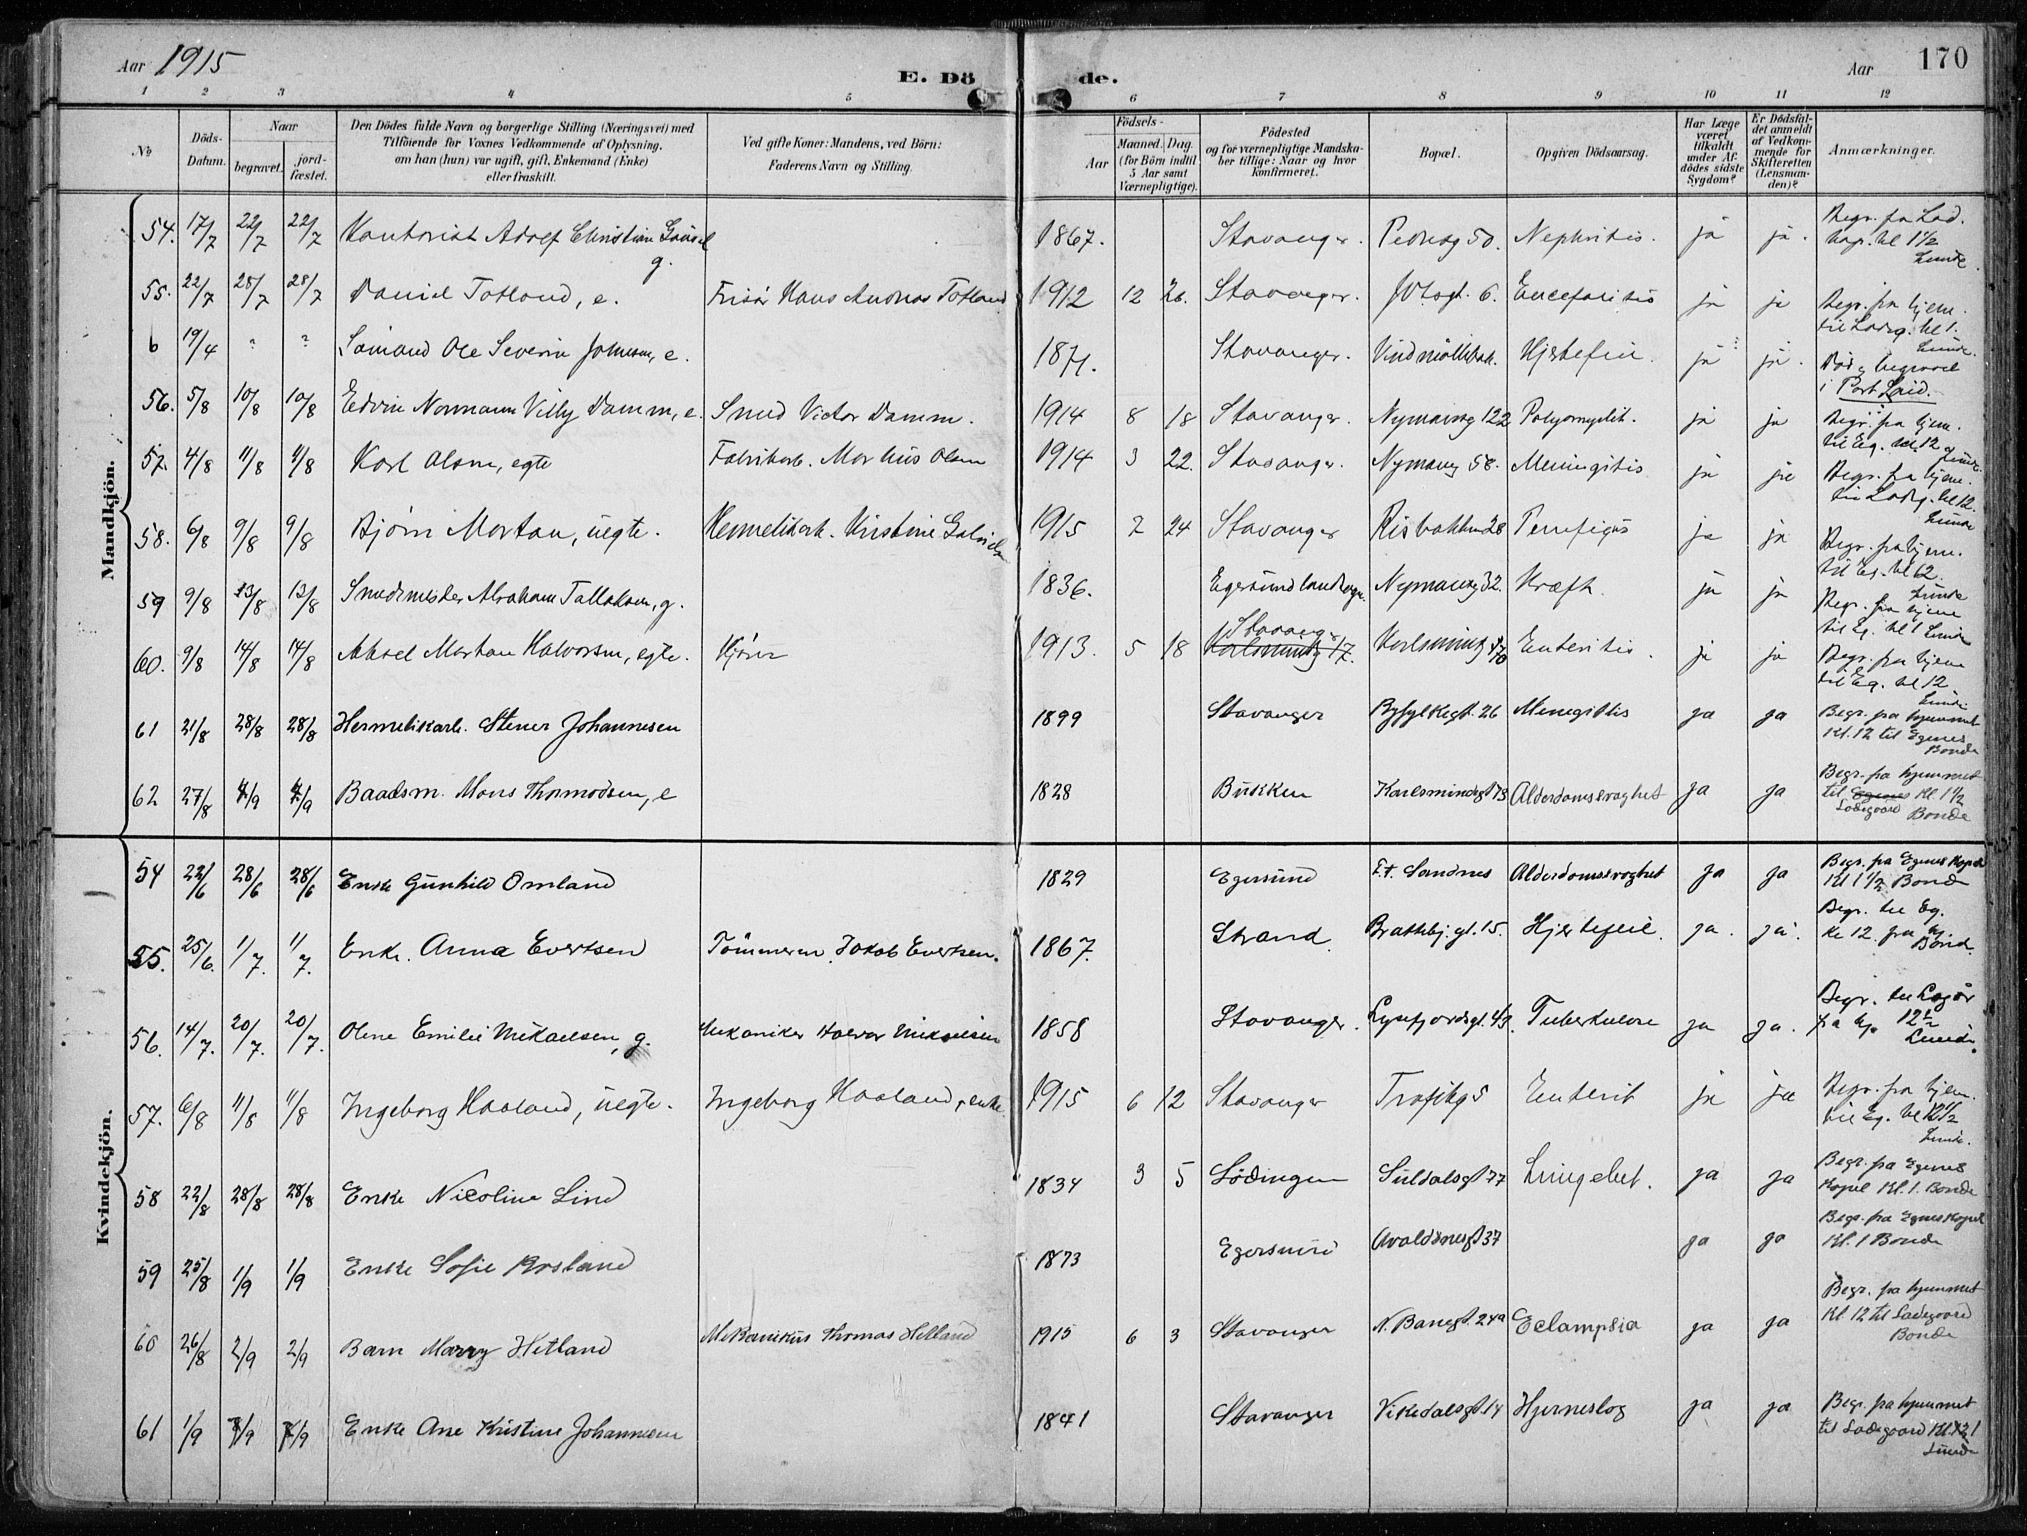 Aar 1915
E. Dö de.
Aar 170
1 2 3 4 5 6 7 8 9 10 11 12
No
Döds-Datum.
Naar
begravet.
jord-fæstet.
Den Dödes fulde Navn og borgerlige Stilling (Næringsvei) med
Tilföiende for Voxnes Vedkommende af Oplysning,
om han (hun) var ugift, gift, Enkemand (Enke)
eller fraskilt.
Ved gifte Koner: Mandens, ved Börn:
Faderens Navn og Stilling.
Födsels-
Aar
Maaned. Dag.
(for Börn indtil
5 Aar samt
Værnepligtige).
Födested
og for værnepligtige Mandska-
ber tillige: Naar og hvor
konfirmeret.
Bopæl.
Opgiven Dödsaarsag.
Har Læge
været
tilkaldt
under Af-
dödes sidste
Sygdom?
Er Dödsfal-
det anmeldt
af Vedkom-
mende for
Skifteretten
(Lensman-
den)?
Anmærkninger.
Mandkjön.
54. 17/7 22/7 22/7 Kontorist Adolf Christian Gausel g. 1867. Stavanger. Pedersg 50. Nephritis. ja ja. Begr. fra Lad. kap. kl 1 1/2 Lunde.
55. 22/7 28/7 28/7 Daniel Totland, e. Frisör Hans Andreas Totland 1912 12 26. Stavanger. 6. Encefalitis ja ja Begr. fra hjem. til Ladg. kl 1. Lunde.
6 19/4 ? ? Sömand Ole Severin Johnsen, e. 1871. Stavanger. Vindmöllebak. Hjertefeil. ja ja. Död og begravet i Port Said.
56. 5/8 10/8 10/8 Edvin Normann Villy Damm, e. Smed Victor Damm. 1914 8 18 Stavanger. Nymansvg 122 ja ja Begr. fra hjem. til Eg. kl. 12 Lunde.
57. 4/8 11/8 11/8 Karl Olsen, egte Fabrikarb. Markus Olsen 1914 3 22. Stavanger. Nymansvg 58. Meningitis ja ja Begr. fra hjem. til Ladg. kl 12. Lunde
58. 6/8 9/8 9/8 Bjørn Morton, uegte. Hermetikarb. Kirstine 1915 2 24 Stavanger Risbakken 28 Pemfigus ja ja Begr. fra hjem. til Eg. kl 12. Lunde
59 9/8 13/8 13/8 Smedmester Abraham Tallaksen, g. 1836. Egersund landsogn. Nymansvg 32. Kræft. ja ja Begr. fra hjem til Eg. kl 1 Lunde
60. 9/8 14/8 14/8 Aksel Morton Halvorsen, egte. Kjörer 1913. 5 18 Stavanger Karlsmindeg 17. Karlsmindeg Enteritis. ja ja Begr. fra hjem til Eg. kl 12 Lunde
61 21/8 28/8 28/8 Hermetikarb. Stener Johannesen 1899 Stavanger Ryfylkegt. 26 Menegittis ja ja Begr. fra hjemmet Kl. 12 til Egenes Bonde
62 27/8 4/9 4/9 Baadsm. Mons Thormodsen, e 1828 Busken Karlsmindegt 73 Alderdomssvaghet ja ja Begr. fra hjemmet til Egenes Kl. 1 1/2 Ladegaard Bonde
Kvindekjön.
54 22/6 28/6 28/6 Enke Gunhild Omland 1829 Egersund Et. Sandnes Alderdomssvaghet ja ja Begr. fra Egenes Kapel Kl 1 1/2 Bonde
55. 25/6. 1/7. 1/7. Enke. Anna Evertsen Tömmerm. Jakob Evertsen. 1867. Strand. Brattebj. gt. 15. Hjertefeil. ja. ja. Begr. til Eg. Kl 12. fra hj. Bond.
56. 14/7. 20/7. 20/7. Oline Emilie Mikaelsen, g. Mekaniker Halvor Mikaelsen 1858 Stavanger. Lysefjordsgt. 43. Tuberkulose ja ja. Begr. til Lagår fra hj. 12 1/2 Lunde.
57. 6/8 11/8 11/8 Ingeborg Haaland, uegte. Ingeborg Haaland, enke 1915 6 12 Stavanger Trafikg 5 Enterit ja ja Begr. fra hjem. til Eg. kl 12 1/2 Lunde.
58 22/8 28/8 28/8 Enke Nicoline Lind 1834 3 5 Lödingen Suldalsgt 77 Lungebet. ja ja Begr. fra Egenes Kapel Kl. 1. Bonde
59 25/8 1/9 1/9 Enke Sofie Rosland 1873 Egersund Avaldsnesgt 37 ja ja Begr. fra Egenes Kapel Kl. 1 Bonde
60 26/8 2/9 2/9 Barn Marry Hetland Mekanikus Thomas Hetland 1915 6 3 Stavanger N. Banegt. 24a Eclampsia ja ja Begr. fra hjemmet Kl 12 til Ladegaard Bonde
61 1/9 7/9 7/9 Enke Ane Kristine Johannesen 1841 Stavanger Vikedalsgt 14 Hjerneslag ja ja Begr. fra hjemmet til Ladegaard Kl. 1 Lunde